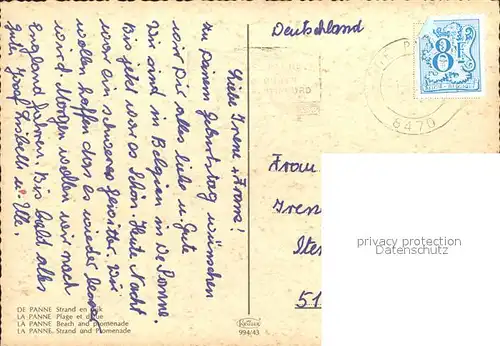 Liebe Irene u. Franz!
zu Deinem Geburtstag wünschen
wir Dir alles liebe u. Gute
Wir sind in Belgien in De Panne.
Bis jetzt war es Schön. Heute Nacht
war ein schweres Gewitter. Wir
wollen hoffen das es wieder besser
wird. Morgen wollen wir nach
England fahren. Bis bald alles
Gute Josef Isabella u. Elke.
Deutschland
8F
8470
Frau
Iren
Ste
51
privacy protection
watermark
DE PANNE Strand en Dijk
LA PANNE Plage et digue
LA PANNE Beach and promenade
LA PANNE Strand und Promenade
994/43